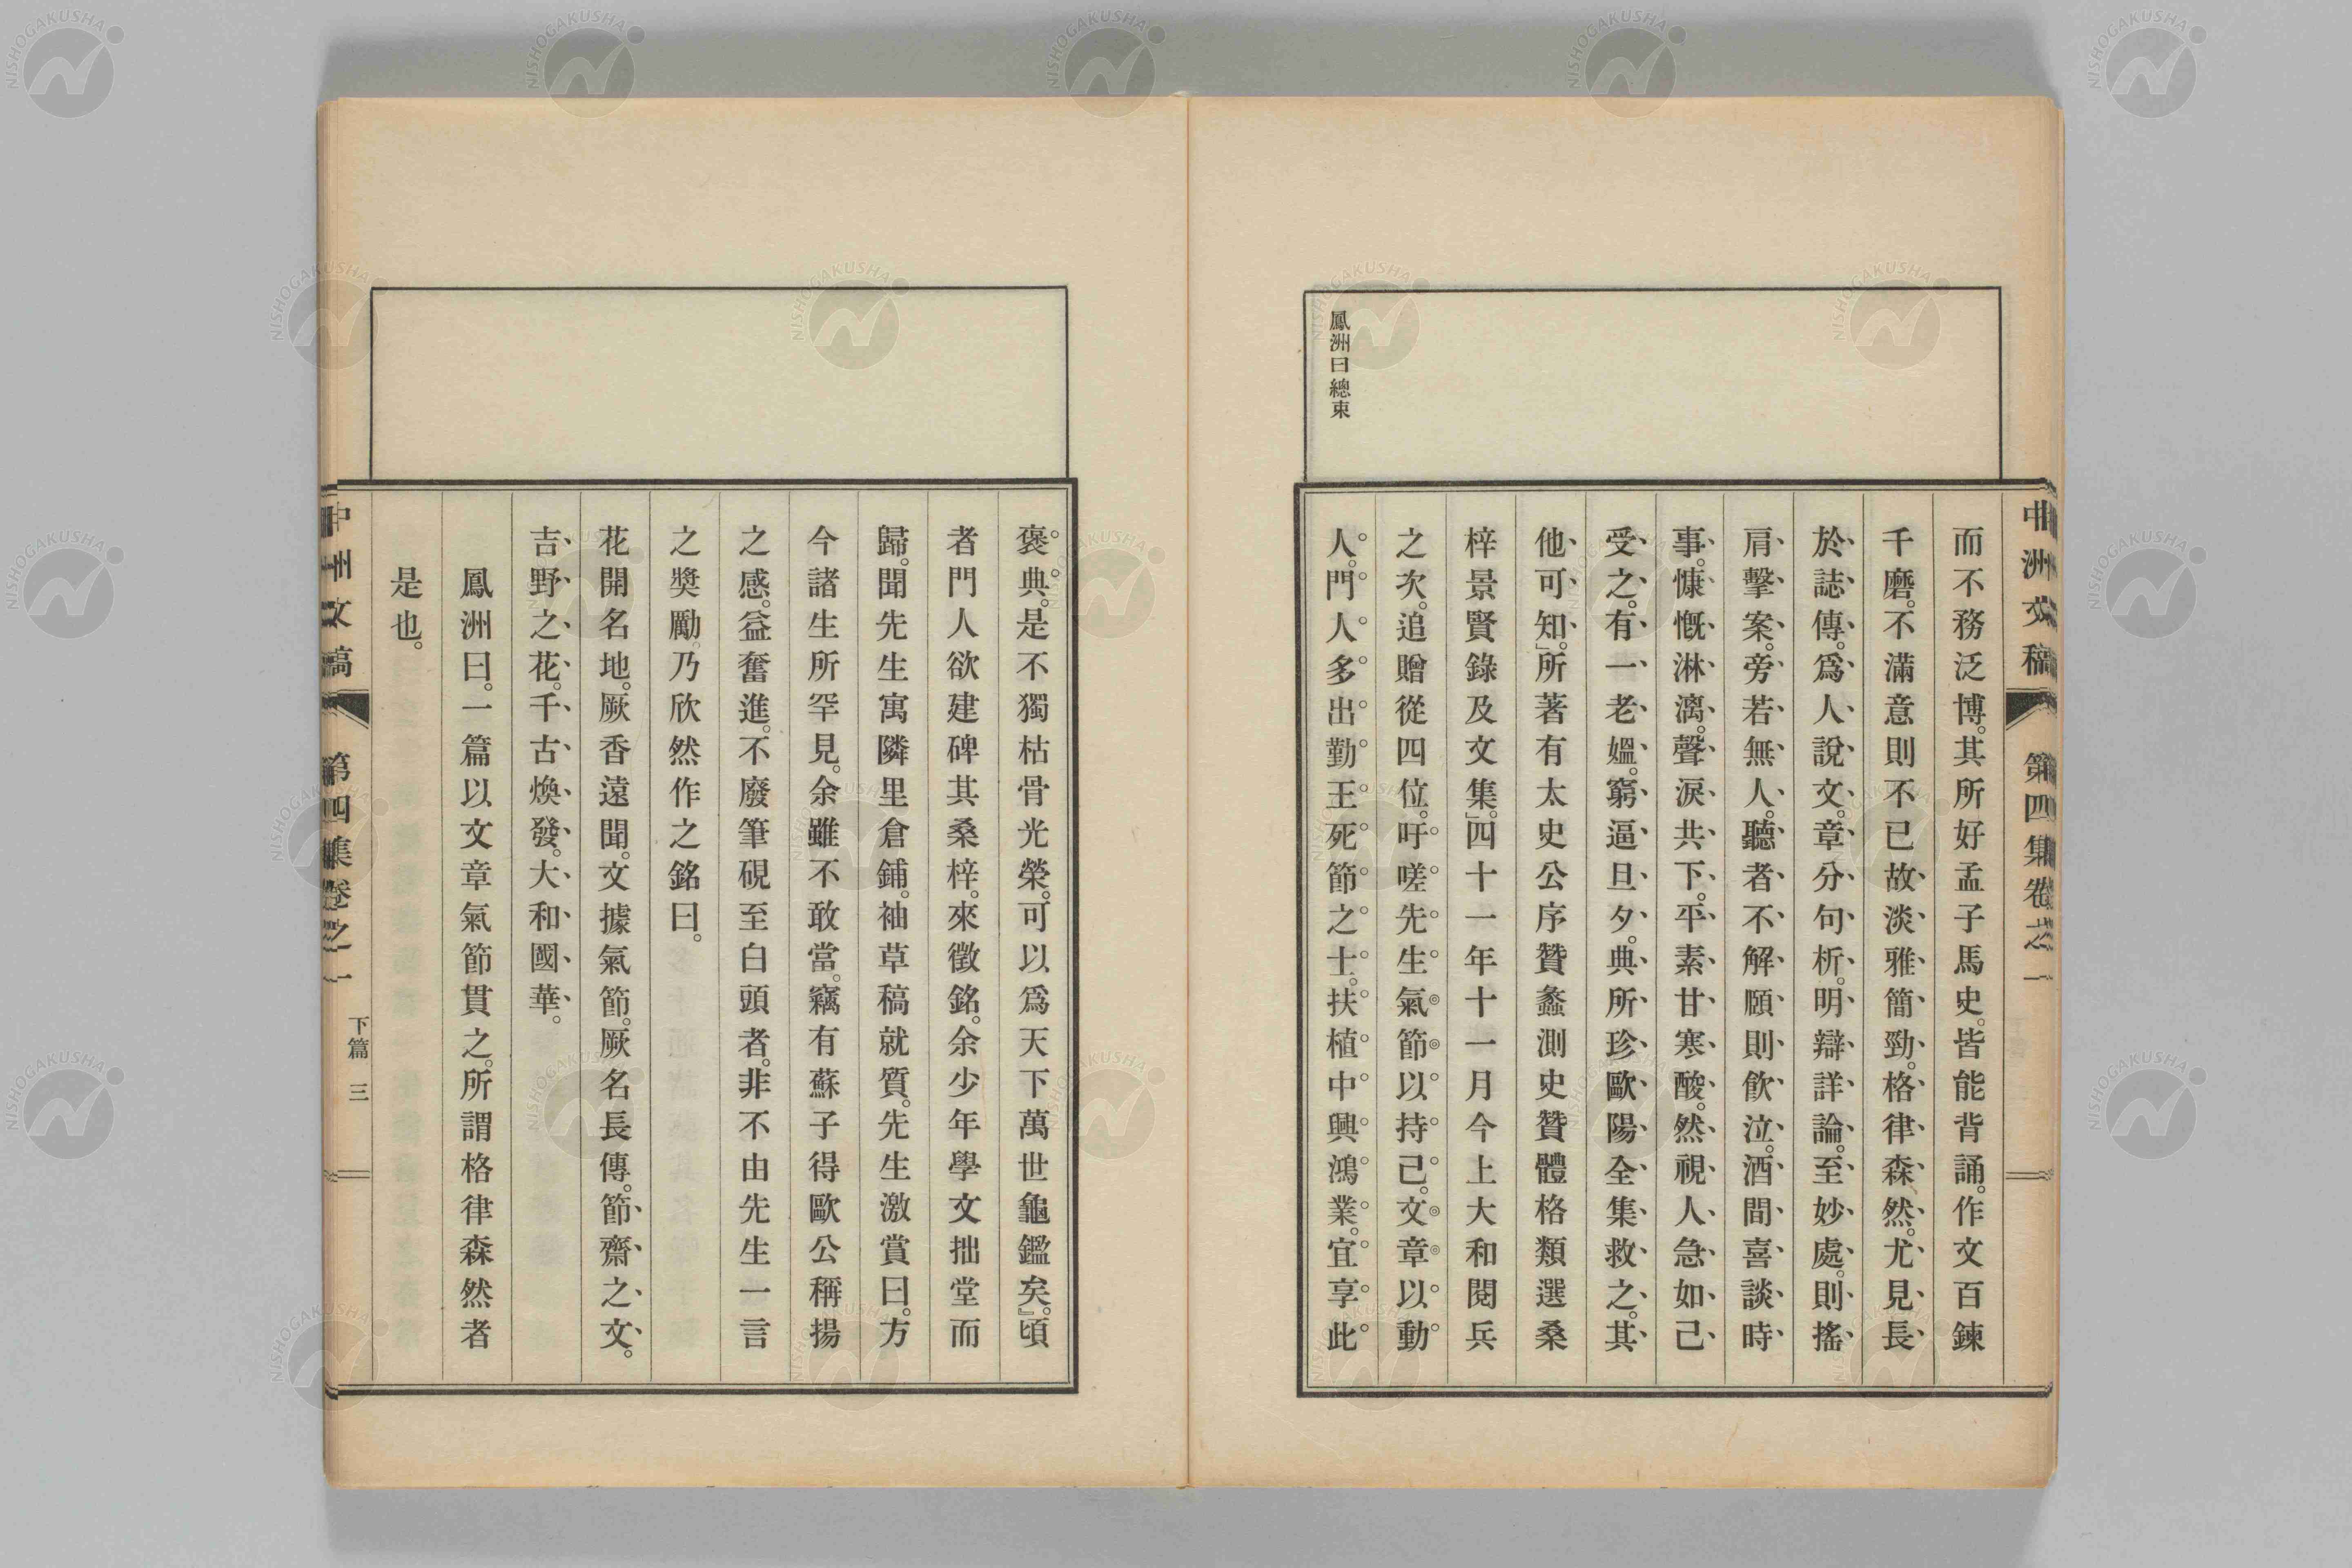 中洲文稿 第四集卷之一
而不務泛博。其所好孟子馬史。皆能背誦。作文百鍊
千磨。不滿意則不已故淡雅簡勁。格律森然。尤見長
於誌傳。爲人說文。章分句析。明辯詳論。至妙處。則搖
肩擊案。旁若無人。聽者不解願則飮泣。酒間喜談時
事。慷慨淋漓。聲淚共下。平素甘寒酸。然視人急如己
受之。有一老媼。窮逼旦夕。典所珍歐陽全集救之。其
他可知。」所著有太史公序贊蠡測史贊體格類選桑
梓景賢錄及文集。」四十一年十一月今上大和閱兵
之次。追贈從四位。吁嗟先生氣節以持己。文章以動
人。門人多出勤王死節之士。扶植中興鴻業。宜享此
鳳洲曰總束
褒典。是不獨枯骨光榮。可以爲天下萬世龜鑑矣。』頃
者門人欲建碑其桑梓。來徵銘。余少年學文拙堂而
歸。聞先生寓隣里倉鋪。袖草稿就質。先生激賞曰。方
今諸生所罕見。余雖不敢當。竊有蘇子得歐公稱揚
之感。益奮進。不廢筆硯至白頭者。非不由先生一言
之奬勵。乃欣然作之銘曰。
花開名地。厥香遠聞。文據氣節。厥名長傳。節齋之文。
吉野之花。千古煥發。大和國華。
鳳洲曰。一篇以文章氣節貫之。所謂格律森然者
是也。
中洲文稿 第四集卷之一 下篇 三
NISHOGAKUSHA